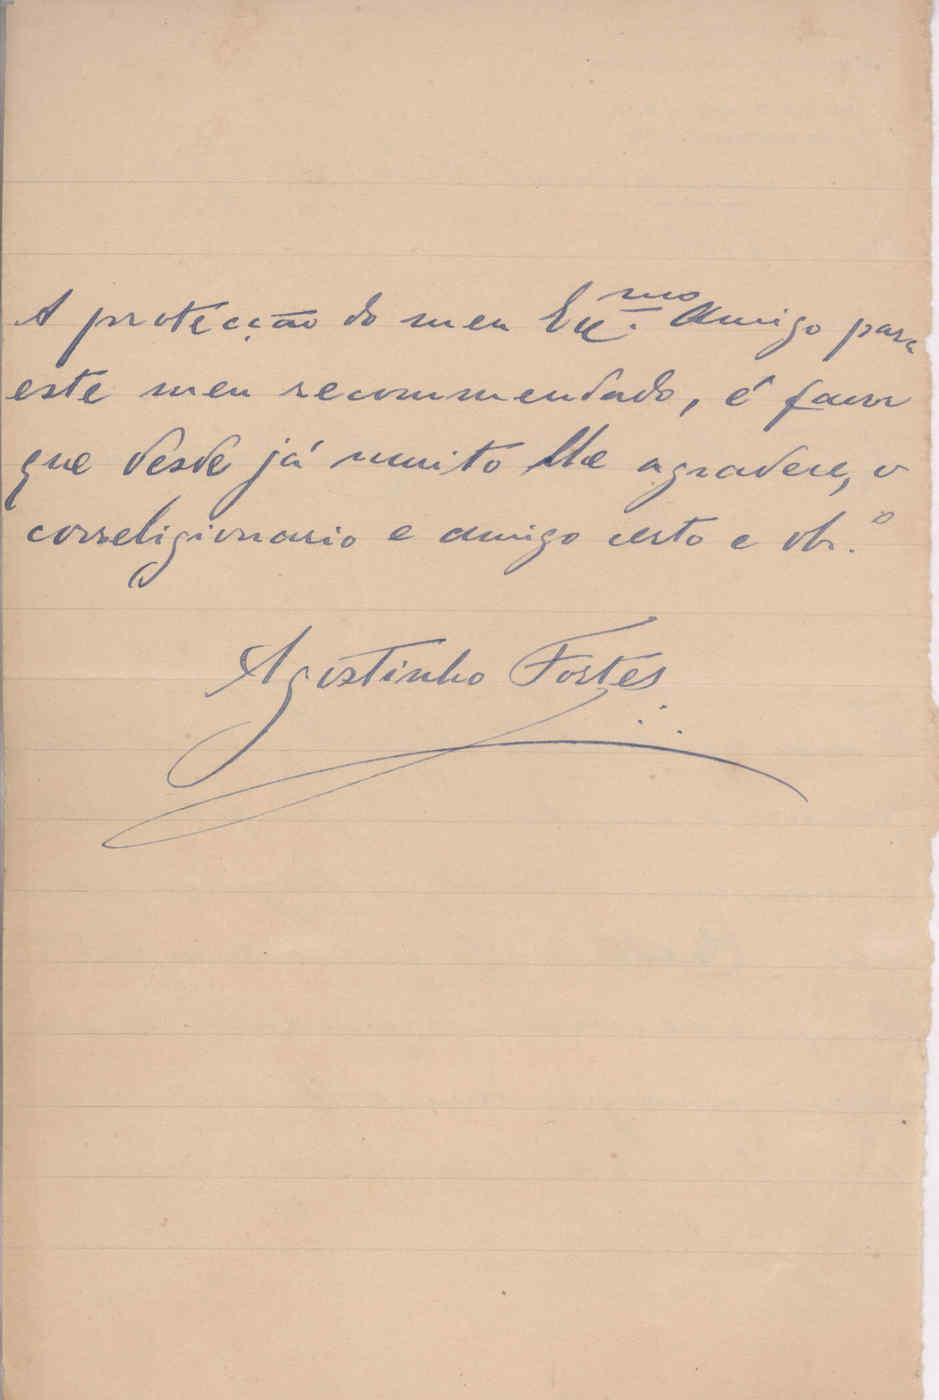 A protecção do meu Ex.mo Amigo para
este meu recommendado, é favor
que desde já muito lhe agradece, o
correligionario e amigo certo e obr.º
Agostinho Fortes